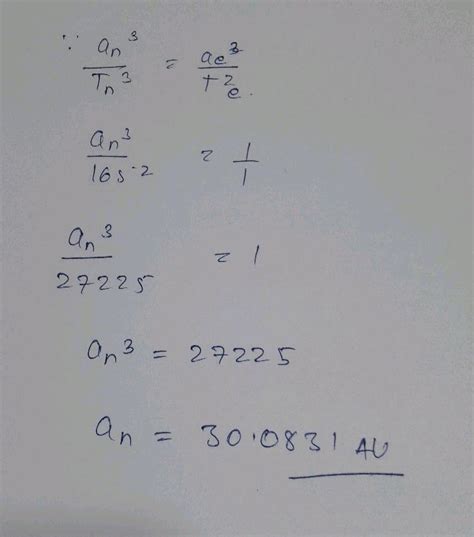 ∵ aₙ³ / Tₙ³ = ae³ / T²e.
aₙ³ / 165·2 = 1 / 1
aₙ³ / 27225 = 1
aₙ³ = 27225
aₙ = 30.0831 AU